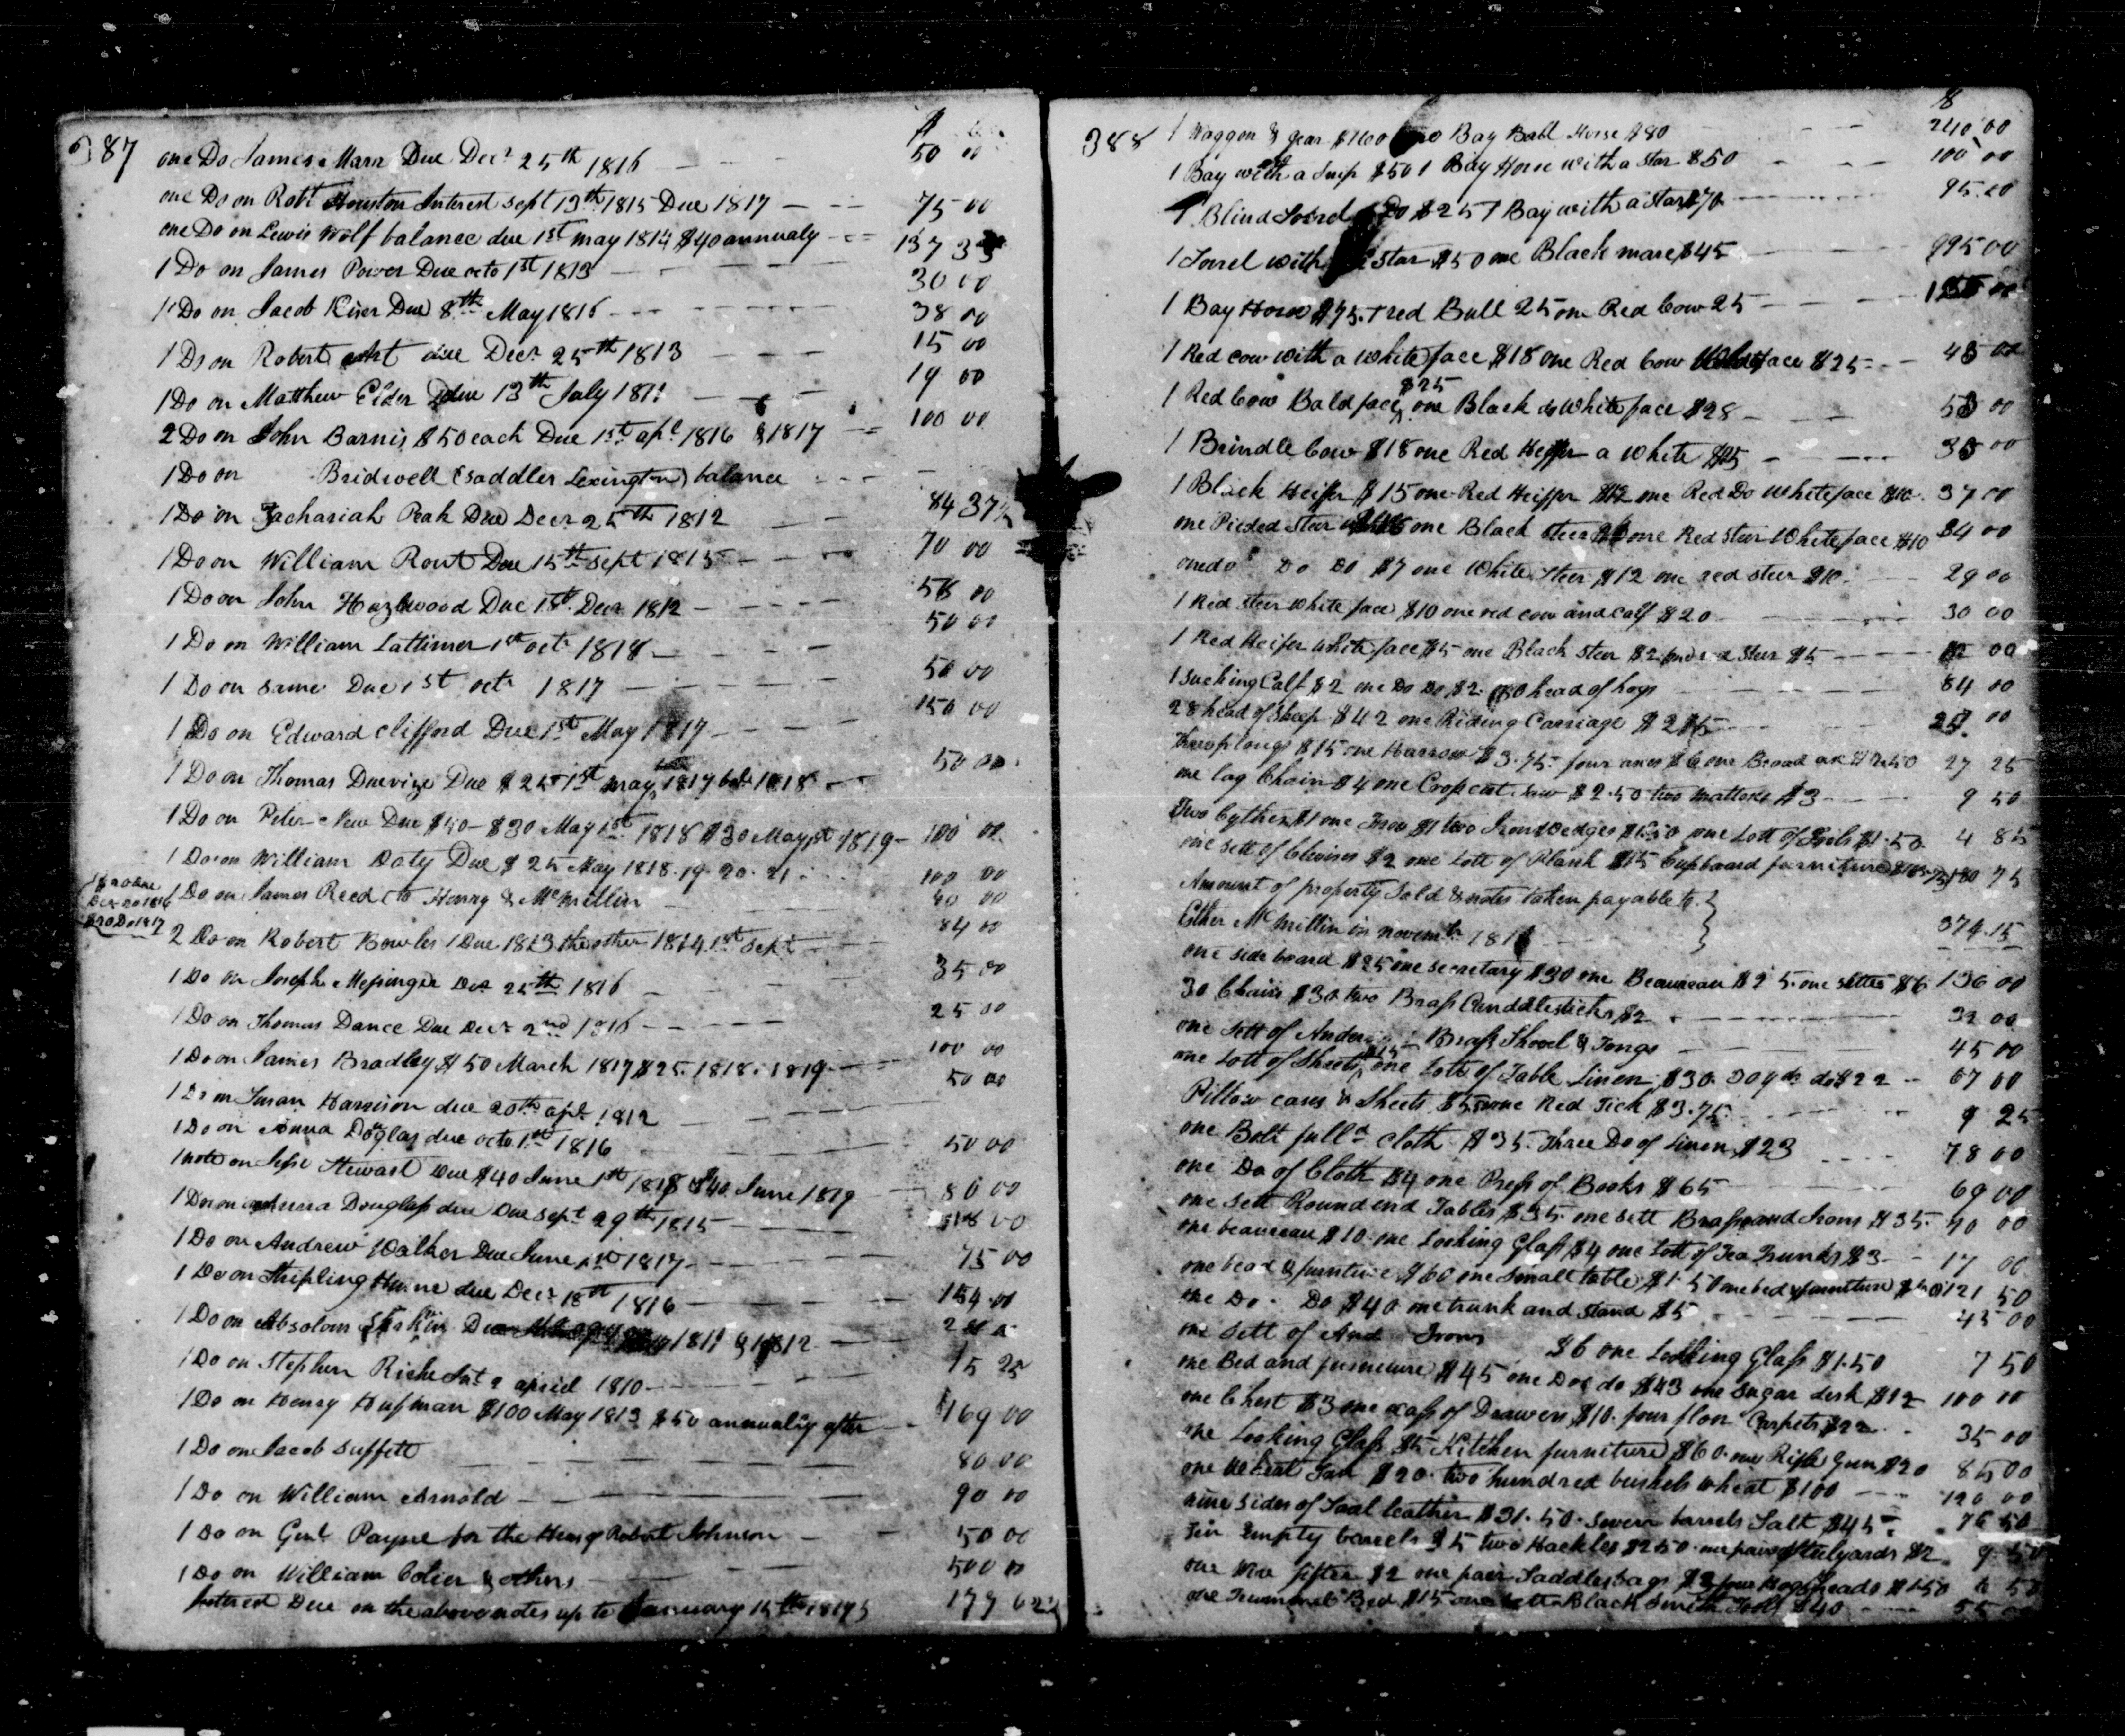 387
$
one Do James Marr Due Decr 25th 1816 50 00
one Do on Robt Houston Interest sept 13th 1815 Due 1817 75 00
one Do on Lewis Wolf balance due 1st may 1814 $40 annualy 137 33
1 Do on James Power Due octo 1st 1813 30 00
1 Do on Jacob Kiser Due 8th May 1816 38 00
1 Do on Robert due Decr 25th 1813 15 00
1 Do on Matthew Elder due 13th July 1811 19 00
2 Do on John Barnis $50 each Due 1st apl 1816 & 1817 100 00
1 Do on Bridwell (Saddler Lexington) balance
1 Do on Zachariah Peak Due Decr 25th 1812 84 37½
1 Do on William Rout Due 15th Sept 1815 70 00
1 Do on John Hazlewood Due 1st Decr 1812 00
1 Do on William Lattimer 1st octr 1818 50 00
1 Do on same Due 1st octr 1817 50 00
1 Do on Edward Clifford Due 1st May 1817 150 00
1 Do on Thomas Due $25 1st may 1817 1818 50 00
1 Do on Peter New Due $40 $30 May 1st 1818 $30 May 1st 1819 100 00
1 Do on William Doty Due $25 May 1818. 19. 20. 21 100 00
$20 Due
Decr 20 1816
$20 Do 1817
1 Do on James Reed to Henry & McMillin 40 00
2 Do on Robert Bowles 1 Due 1813 the other 1814 1st Sept 84 00
1 Do on Joseph Messinger Decr 25th 1816 35 00
1 Do on Thomas Dance Due Decr 2nd 1816 25 00
1 Do on James Bradley $50 March 1817 $25. 1818. 1819 100 00
1 Do on Susan Harrison due 20th apl 1812 50 00
1 Do on Anna Douglas due octo 1st 1816 50 00
1 note on Jesse Stewart Due $40 June 1st 1818 $40 June 1819 80 00
1 Do on Anna Douglass due Due Sept 29th 1815
1 Do on Andrew Walker Due June 1st 1817 75 00
1 Do on Stripling Hume due Decr 18th 1816 154 00
1 Do on Absolom 1811 & 1812
1 Do on Stephen Riche Int 2 april 1810 15 25
1 Do on Henry Hufman $100 May 1813 $50 annually after 169 00
1 Do on Jacob Suffett 80 00
1 Do on William Arnold 90 00
1 Do on Genl Payne for the Heirs of Robert Johnson 50 00
1 Do on William Colier & others 500 00
Interest Due on the above notes up to January 15th 1817 177
388
$
1 Waggon & gear $160 one Bay Ball Horse $80 240 00
1 Bay with a Snip $50 1 Bay Horse with a Star $50 100 00
1 Blind Sorrel Do $25 1 Bay with a Star $70 95.00
1 Sorrel with a Star $50 one Black mare $45 95 00
1 Bay Horse $75. 1 red Bull 25 one Red Cow 25 00
1 Red cow with a White face $18 one Red Cow White face $25 43 00
1 Red Cow Bald face $25 one Black do White face $28 53 00
1 Brindle Cow $18 one Red Heiffer a White 00
1 Black Heiffer $15 one Red Heiffer $12 one Red Do White face $10. 37 00
one Pieded Steer one Black steer one Red Steer White face $10 34 00
one do Do Do $7 one White Steer $12 one red steer $10 29 00
1 Red steer white face $10 one red cow and calf $20 30 00
1 Red Heifer White face $5 one Black Steer $2 one red Steer $5 12 00
1 sucking Calf $2 one Do Do $2. 80 head of hogs 84 00
28 head of sheep $42 one Riding Carriage 00
Three plougs $15 one Harrow $3.75. four axes $6 one Broad ax $2.50 27 25
one log Chain $4 one Cross cut saw $2.50 two mattocks $3 9 50
Two Cythes $1 one two Iron Wedges one Lott of Tools $1.50 4 85
one sett of Clevises $2 one lott of Plank $15 Cupboard furniture 180 75
Amount of property sold & notes taken payable to }
Esther McMillin in novembr 1816 } 374.15
one side board $25 one secretary $30 one Beaureau $25. one settee $6 136 00
30 Chairs $30 two Brass Candlesticks $2 32 00
one sett of Andirons Brass Shovel & Tongs 45 00
one Lott of Sheets $15 one Lott of Table Linen $30. 30 yds do $22 67 00
Pillow cases & Sheets one Red Tick $3.75 9 25
one Bolt fulld cloth $35 Three Do of Linen $23 78 00
one Do of Cloth $4 one Press of Books $65 69 00
one sett Round end Tables $35. one sett Brass and Irons $35. 70 00
one beaureau $10. one Looking Glass $4 one Lott of Tea Trunks $3 17 00
one bead & furniture $60 one small table $1.50 one bed & furniture $60 121 50
one Do. Do $40 one trunk and stand $5 45 00
one sett of And Irons $6 one Looking Glass $1.50 7 50
one Bed and furniture $45 one Do do $43 one Sugar desk $12 100 00
one Chest $3 one case of Drawers $10. four floor Carpets $22 35 00
one Looking Glass $5 Kitchen furniture $60. one Rifle Gun $20 85 00
one Wheat Fan $20. two hundred bushels wheat $100 120 00
nine sides of Soal leather $31.50. seven barrels Salt $45 76 50
Ten Empty barrels $5 two Hackles $2.50. one pair of Stilyards $2 9 50
one Wire sifter $2 one pair Saddlebags $3 four Hogsheads $1.50 6 50
one Trummel Bed $15 one sett Black Smith Tools $40 55 00